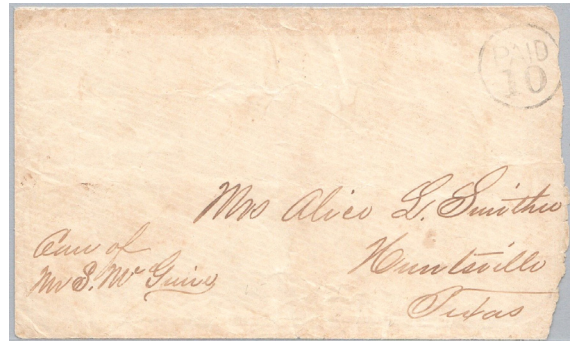 PAID
10
Mrs Alice L. Smither
Huntsville
Texas
Care of
Mr S. McGuire